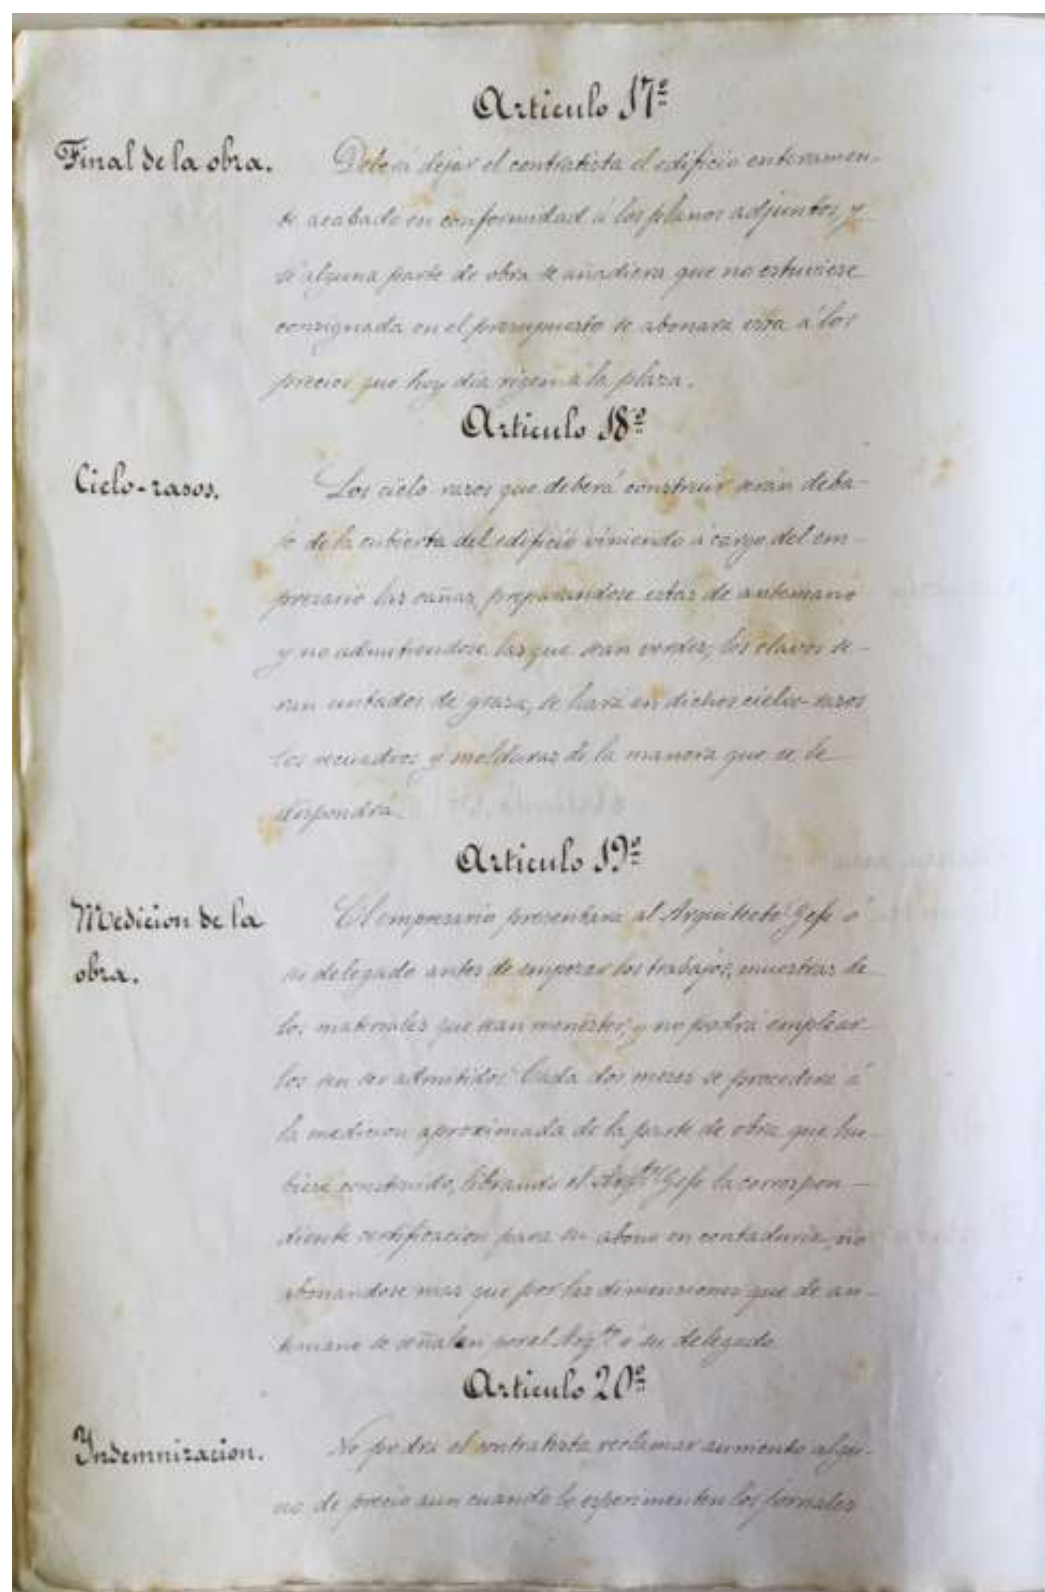 Articulo 17º
Final de la obra.
Deberá dejar el contratista el edificio enteramen-
te acabado en conformidad á los planos adjuntos, y
si alguna parte de obra se añadiera que no estuviese
consignada en el presupuesto se abonara esta á los
precios que hoy dia rigen á la plaza.
Articulo 18º
Cielo-rasos.
Los cielo rasos que deberá construir serán deba-
jo de la cubierta del edificio viniendo á cargo del em-
presario las cañas, preparandose estas de antemano
y no admitiendose las que sean verdes, los clavos se-
ran untados de grasa, se hara en dichos cielos-rasos
los recuadros y molduras de la manera que se le
dispondra.
Articulo 19º
Medicion de la
obra.
El empresario presentará al Arquitecto Gefe ó
su delegado antes de empezar los trabajos, muestras de
los materiales que sean menester, y no podrá emplear
los sin ser admitidos. Cada dos meses se procederá á
la medicion aproximada de la parte de obra que hu-
biere construido, librando el Arqto Gefe la correspon-
diente certificacion para su abono en contaduria, no
abonandose mas que por las dimensiones que de an-
temano se señalen por el Arqto ó su delegado.
Articulo 20º
Indemnizacion.
No podrá el contratista reclamar aumento algu-
no de precio aun cuando lo esperimenten los jornales